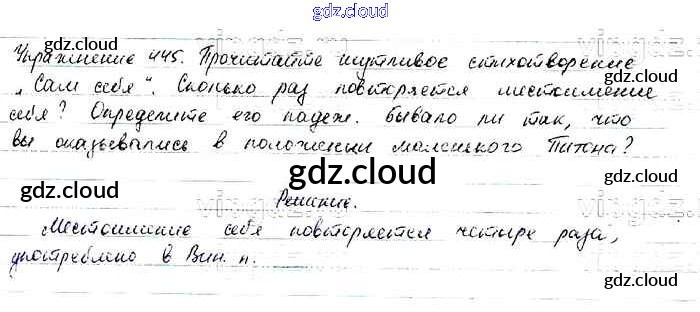 gdz.cloud
Упражнение 445. Прочитайте шутливое стихотворение
„Сам себя". Сколько раз повторяется местоимение
себя? Определите его падеж. бывало ли так, что
вы оказывались в положении маленького Питона?
Решение.
Местоимение себя повторяется четыре раза,
употреблено в Вин. п.
gdz.cloud
gdz.cloud
gdz.cloud
gdz.cloud
gdz.cloud
gdz.cloud
gdz.cloud
gdz.cloud